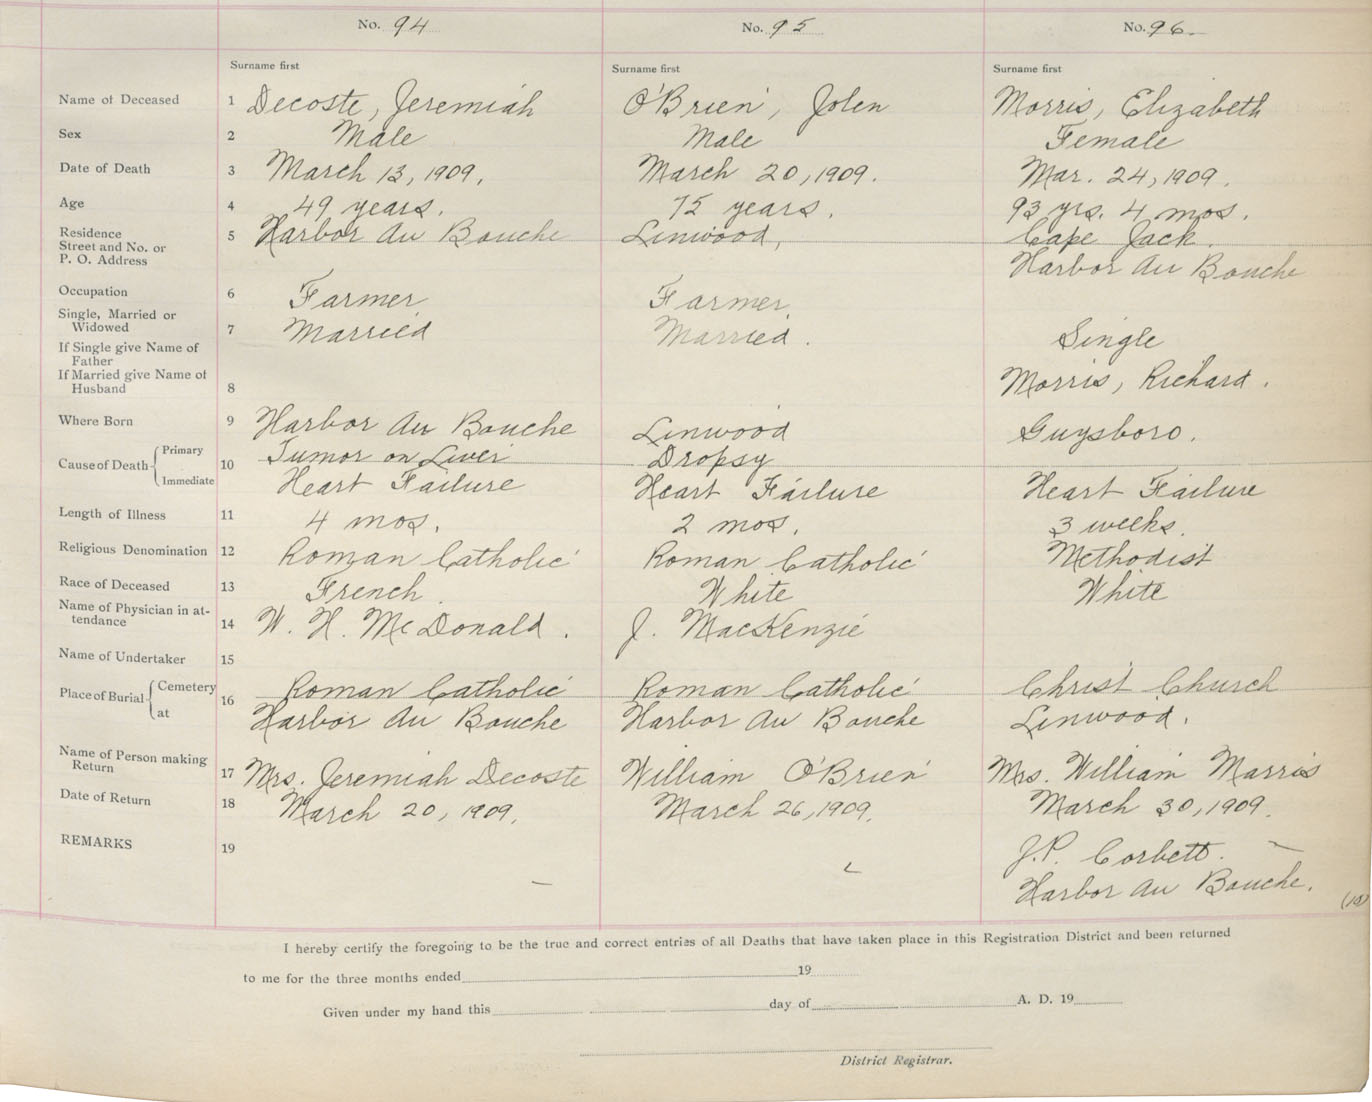 No. 94 No. 95 No. 96
Surname first Surname first Surname first
Name of Deceased 1 Decoste, Jeremiah O'Brien, John Morris, Elizabeth
Sex 2 Male Male Female
Date of Death 3 March 13, 1909. March 20, 1909. Mar. 24, 1909.
Age 4 49 years. 75 years. 93 yrs. 4 mos.
Residence
Street and No. or
P. O. Address 5 Harbor Au Bouche Linwood, Cape Jack.
Harbor Au Bouche
Occupation 6 Farmer Farmer
Single, Married or
Widowed 7 Married Married. Single
If Single give Name of
Father
If Married give Name of
Husband 8 Morris, Richard.
Where Born 9 Harbor Au Bouche Linwood Guysboro.
Cause of Death Primary 10 Tumor on Liver Dropsy
Immediate Heart Failure Heart Failure Heart Failure
Length of Illness 11 4 mos. 2 mos. 3 weeks.
Religious Denomination 12 Roman Catholic Roman Catholic Methodist
Race of Deceased 13 French White White
Name of Physician in at-
tendance 14 W. H. McDonald. J. MacKenzie
Name of Undertaker 15
Place of Burial Cemetery 16 Roman Catholic Roman Catholic Christ Church
at Harbor Au Bouche Harbor Au Bouche Linwood.
Name of Person making
Return 17 Mrs. Jeremiah Decoste William O'Brien Mrs. William Marris
Date of Return 18 March 20, 1909. March 26, 1909. March 30, 1909.
REMARKS 19 J.P. Corbett.
Harbor Au Bouche.
I hereby certify the foregoing to be the true and correct entries of all Deaths that have taken place in this Registration District and been returned
to me for the three months ended 19
Given under my hand this day of A. D. 19
District Registrar.